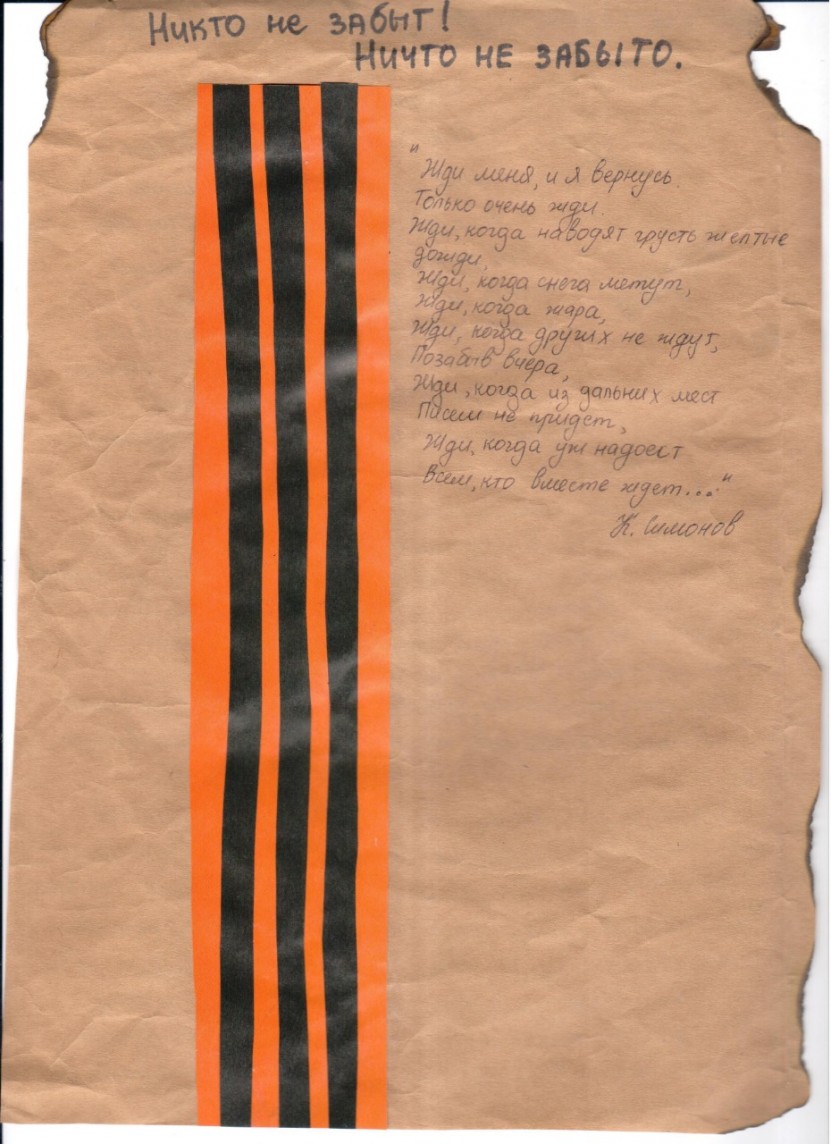 Никто не забыт!
Ничто не забыто.
"Жди меня, и я вернусь.
Только очень жди.
Жди, когда наводят грусть желтые
дожди,
Жди, когда снега метут,
Жди, когда жара,
Жди, когда других не ждут,
Позабыв вчера,
Жди, когда из дальних мест
Писем не придет,
Жди, когда уж надоест
Всем, кто вместе ждет..."
К. Симонов